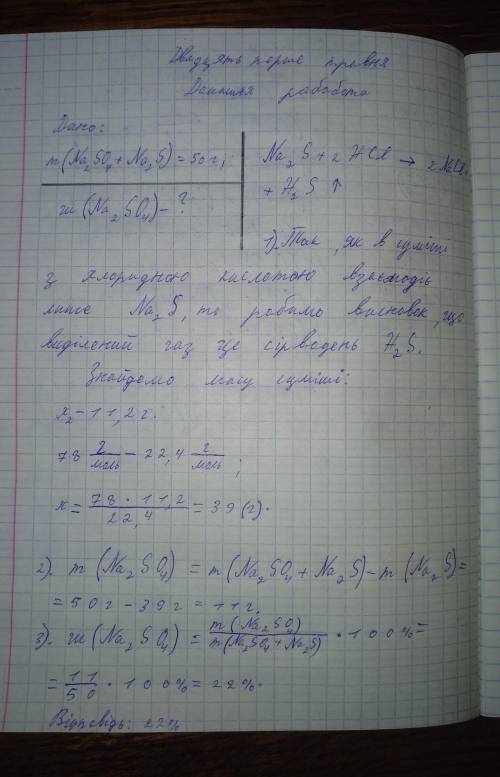 Двадцять перше травня
Домашня робота
Дано:
m(Na₂SO₄ + Na₂S) = 50 г;
ω(Na₂SO₄) - ?
Na₂S + 2HCl → 2NaCl +
+ H₂S ↑
1). Так, як в суміші
з хлоридною кислотою взаємодіє
лише Na₂S, то робимо висновок, що
виділений газ це сірводень H₂S.
Знайдемо масу суміші:
x₂ - 11,2 г.
78 г/моль - 22,4 г/моль;
x = 78 · 11,2 / 22,4 = 39 (г).
2). m(Na₂SO₄) = m(Na₂SO₄ + Na₂S) - m(Na₂S) =
= 50 г - 39 г = 11 г.
3). ω(Na₂SO₄) = m(Na₂SO₄) / m(Na₂SO₄ + Na₂S) · 100% =
= 11/50 · 100% = 22%.
Відповідь: 22%